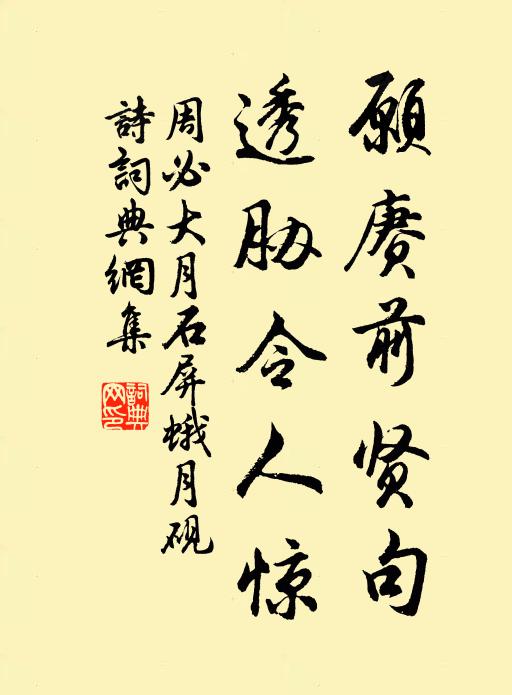 願赓前贤句
透胁令人惊
周必大月石屏蛾月砚
詩詞典網集
詞典网印